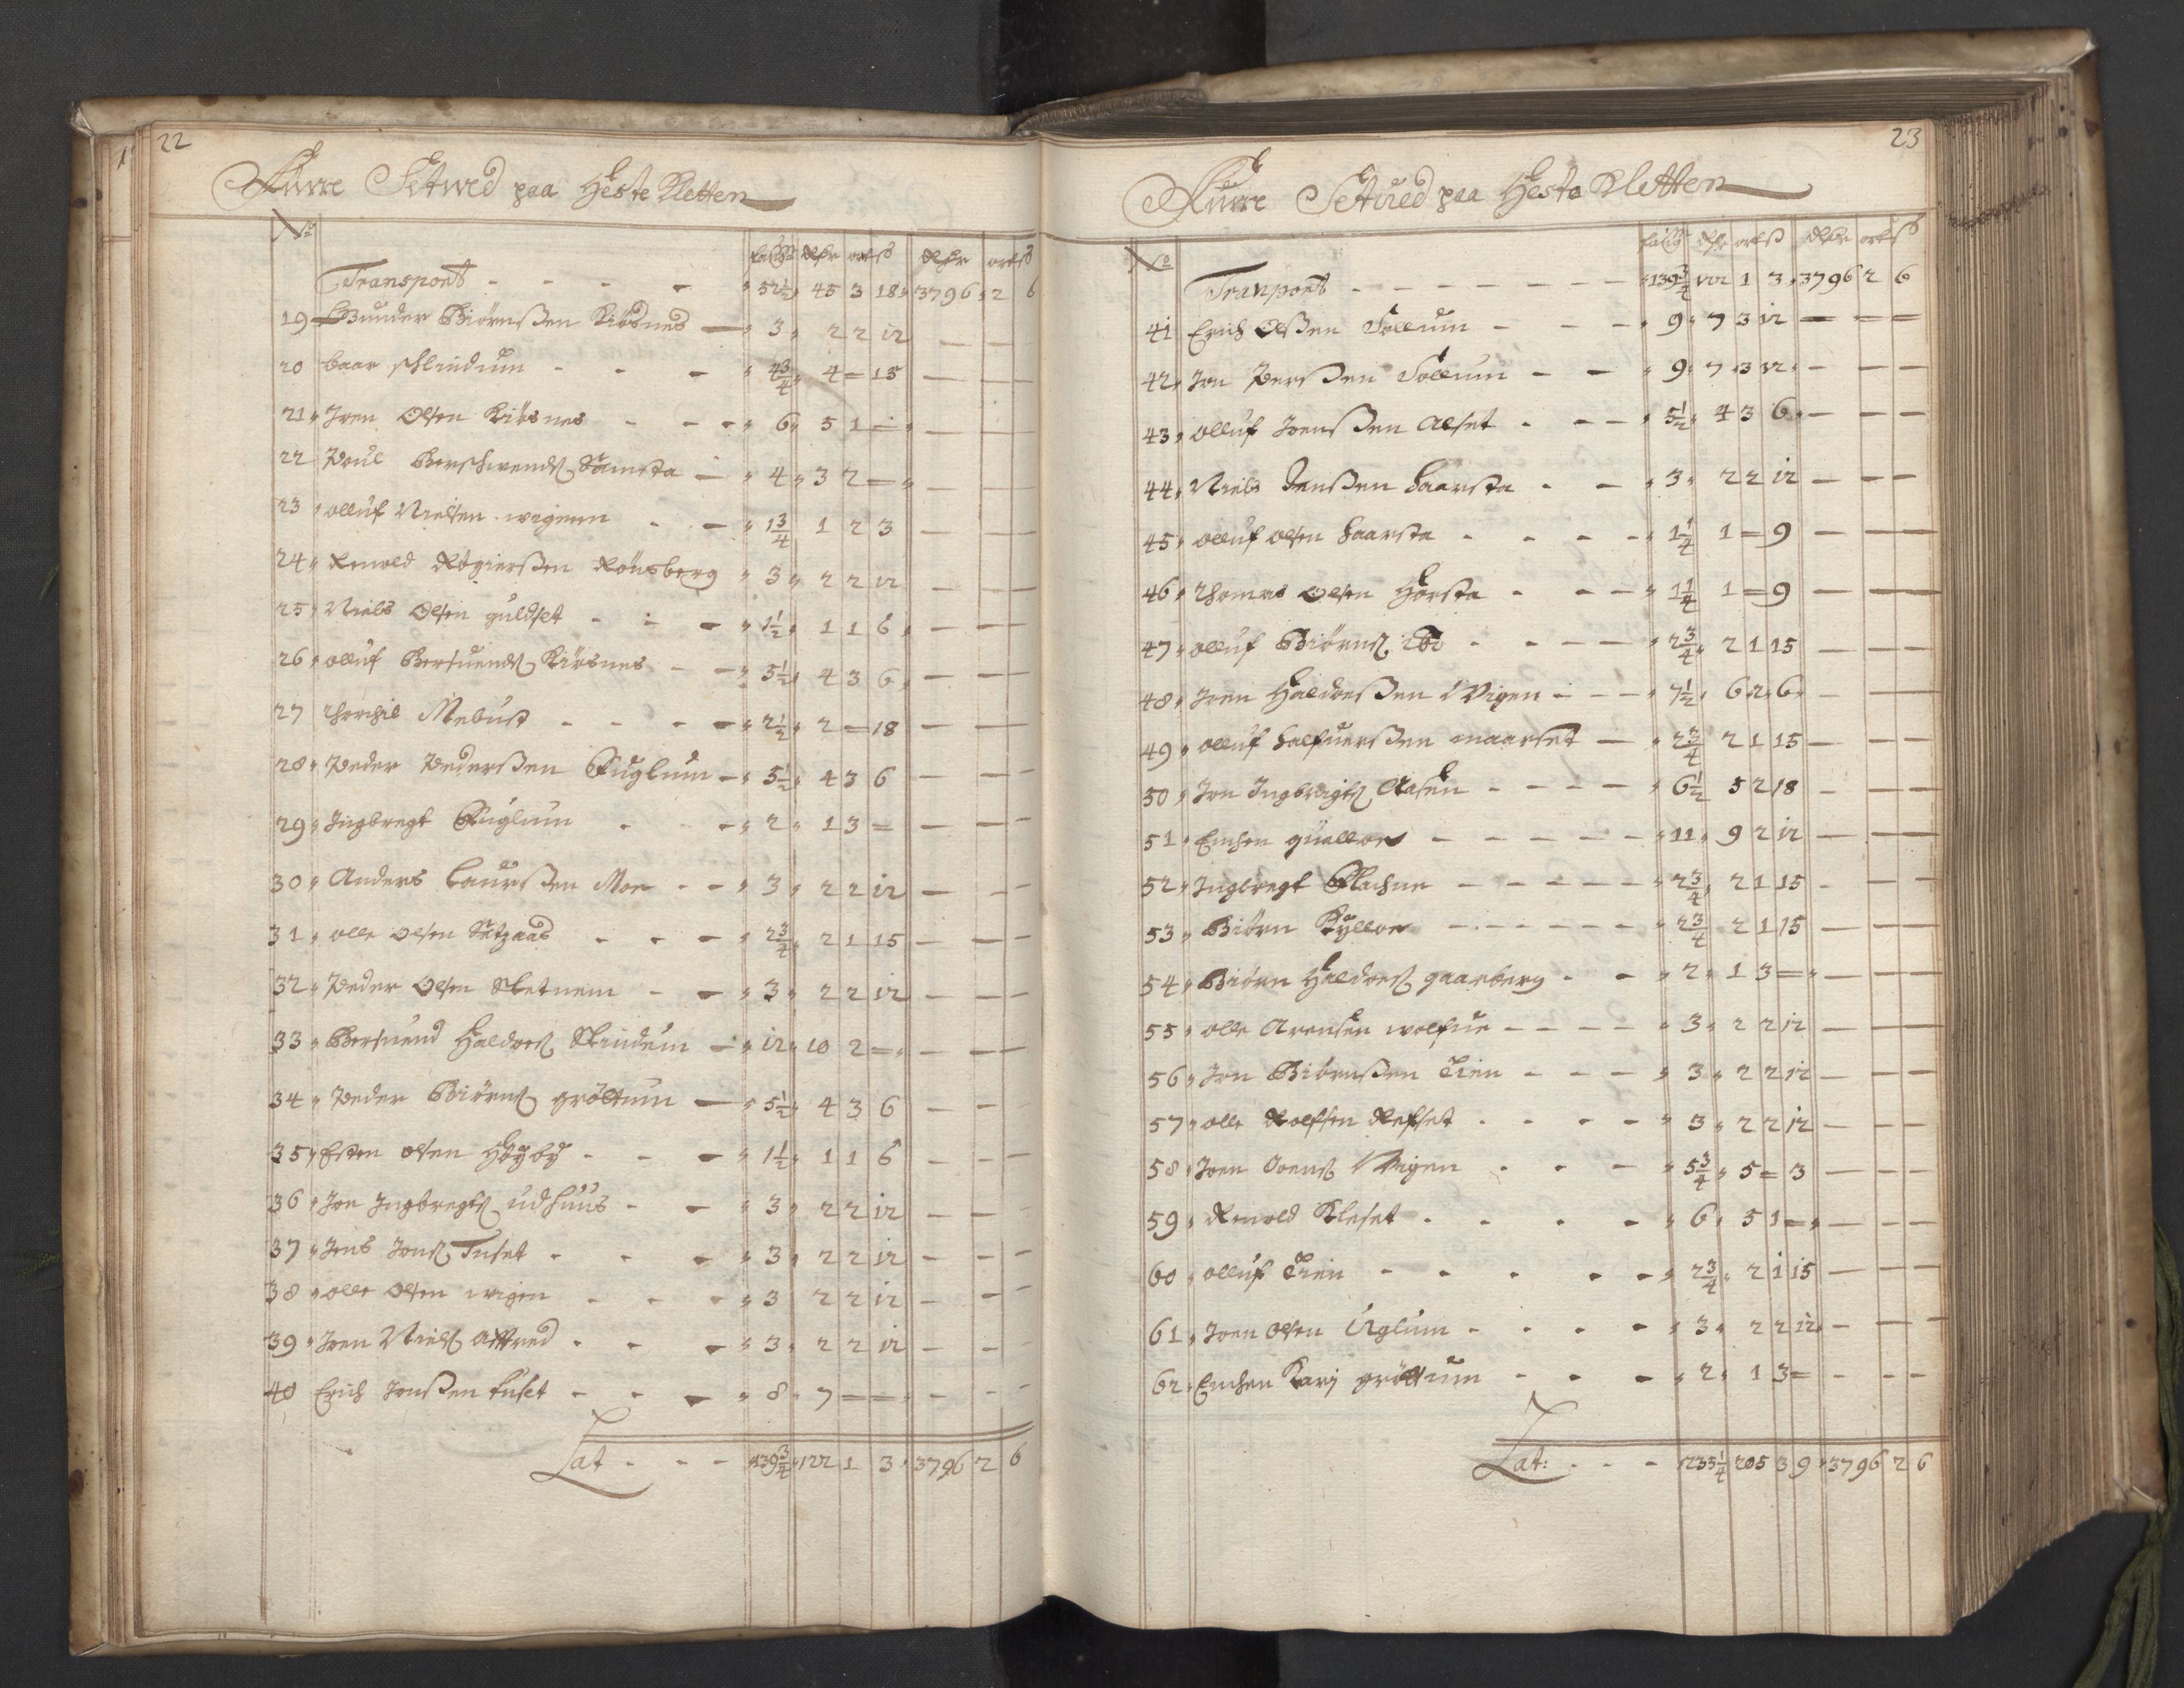 22
Furre Setwed paa Heste Kletten
No
favne Rdr ort ß Rdr ort ß
Transport - - - - 52½ 45 3 18 3796 2 6
19 Gunder Biörnßen Kiösnes - 3 2 2 12 - - -
20 Laar Schlindum - - - 4¾ 4 = 15 - - -
21 Joen Olsen Kiösnes - - - 6 5 1 = - - -
22 Poul Berschwends Samsta - 4 3 2 = - - -
23 olluf Nielsen wigenn - - 1¾ 1 2 3 - - -
24 Renold Rögierßen Rönsberg 3 2 2 12 - - -
25 Niels Olsen guldset - - - 1½ 1 1 6 - - -
26 olluf Bersuends Kiösnes - - 5½ 4 3 6 - - -
27 Thorchil Mebust - - - - 2½ 2 = 18 - - -
28 Peder Pederßen Fuglum - 5½ 4 3 6 - - -
29 Ingbregt Fuglum - - - 2 1 3 = - - -
30 Anders Laurßen Moe - - 3 2 2 12 - - -
31 olle olsen Sätgaas - - - 2¾ 2 1 15 - - -
32 Peder Olsen Sletnem - - 3 2 2 12 - - -
33 Bersuend Haldors Slindum - 12 10 2 = - - -
34 Peder Biörns gröttum - 5½ 4 3 6 - - -
35 Esten olsen Höyby - - - 1½ 1 1 6 - - -
36 Jon Ingbregts udhuus - - 3 2 2 12 - - -
37 Jens Jons Tuset - - - 3 2 2 12 - - -
38 olle Olsen wigen - - - 3 2 2 12 - - -
39 Joen Niels - - - 3 2 2 12 - - -
40 Erich Jonßen tuset - - - 8 7 = = - - -
Lat - - - 139¾ 122 1 3 3796 2 6
23
Furre Setued paa Heste Kletten
No
favne Rdr ort ß Rdr ort ß
Tranport - - - - - - - 139¾ 122 1 3 3796 2 6
41 Erich Olßen Sollum - - - 9 7 3 12 - = =
42 Jon Perßen Sollum - - 9 7 3 12 - - -
43 olluf Joenßen Alset - - - 5½ 4 3 6 - - -
44 Niels Jenßen Haarsta - - 3 2 2 12 - - -
45 olluf olsen Haarsta - - - - 1¼ 1 = 9 - - -
46 Thomas olsen Harsta - - - 1¼ 1 = 9 - - -
47 olluf Biörns ibd - - - - 2¾ 2 1 15 - - -
48 Joen Haldorßen Wigen - - - 7½ 6 2 6 - - -
49 olluf halfuerßen maarset - 2¾ 2 1 15 - - -
50 Jon Ingbrigts Aasen - - - - 6½ 5 2 18 - - -
51 Enchen - - - - - 11 9 2 12 - - -
52 Ingbregt Flachne - - - - - 2¾ 2 1 15 - - -
53 Biörn Kylloe - - - - - - 2¾ 2 1 15 - - -
54 Biörn Haldors gaarberg - - 2 1 3 = - - -
55 olle Arensen wolfue - - - - 3 2 2 12 - - -
56 Jon Biörnßen Tien - - - 3 2 2 12 - - -
57 olle Rolfsen Refset - - - - 3 2 2 12 - - -
58 Joen Joens Wigen - - - 5¾ 5 = 3 - - -
59 Renold Kleset - - - - 6 5 1 = - - -
60 olluf Tien - - - - - 2¾ 2 1 15 - - -
61 Joen olsen Uglum - - - - 3 2 2 12 - - -
62 Enchen Karj gröttum - - - 2 1 3 = - - -
Lat: - - - 235¼ 205 3 9 3796 2 6